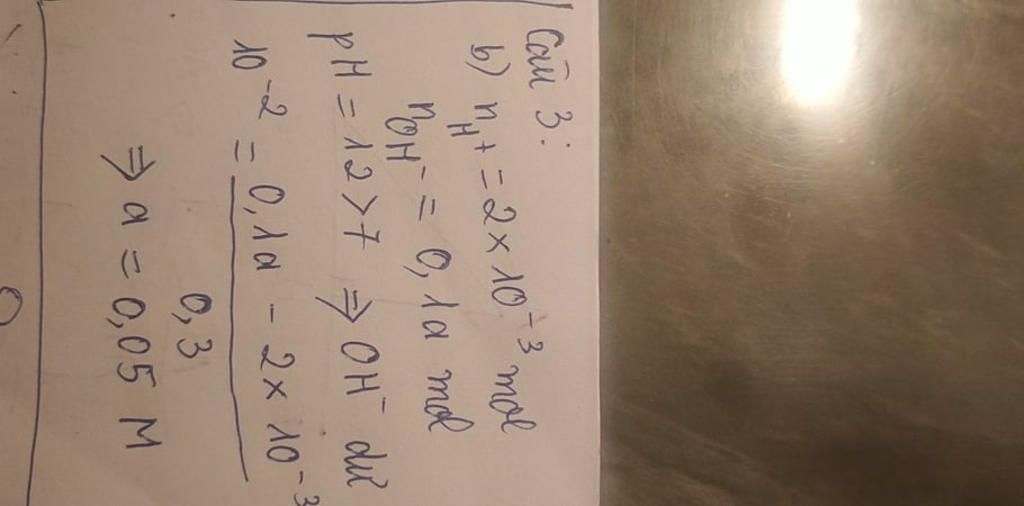 Câu 3:
b) nH+ = 2 × 10⁻³ mol
nOH⁻ = 0,1a mol
pH = 12 > 7 ⇒ OH⁻ dư
10⁻² = 0,1a - 2 × 10⁻³
0,3
⇒ a = 0,05 M